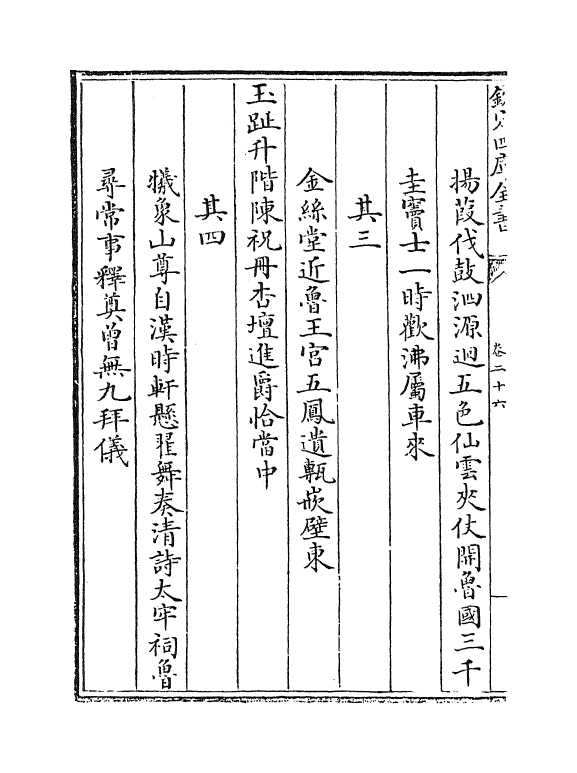 欽定四庫全書
卷二十六
揚葭伐鼓泗源迴五色仙雲夾仗開魯國三千
圭竇士一時歡沸屬車來
其三
金絲堂近魯王宮五鳳遺甎嵌壁東
玉趾升階陳祝冊杏壇進爵恰當中
其四
犧象山尊自漢時軒懸翟舞奏清詩太牢祠魯
尋常事釋奠曾無九拜儀